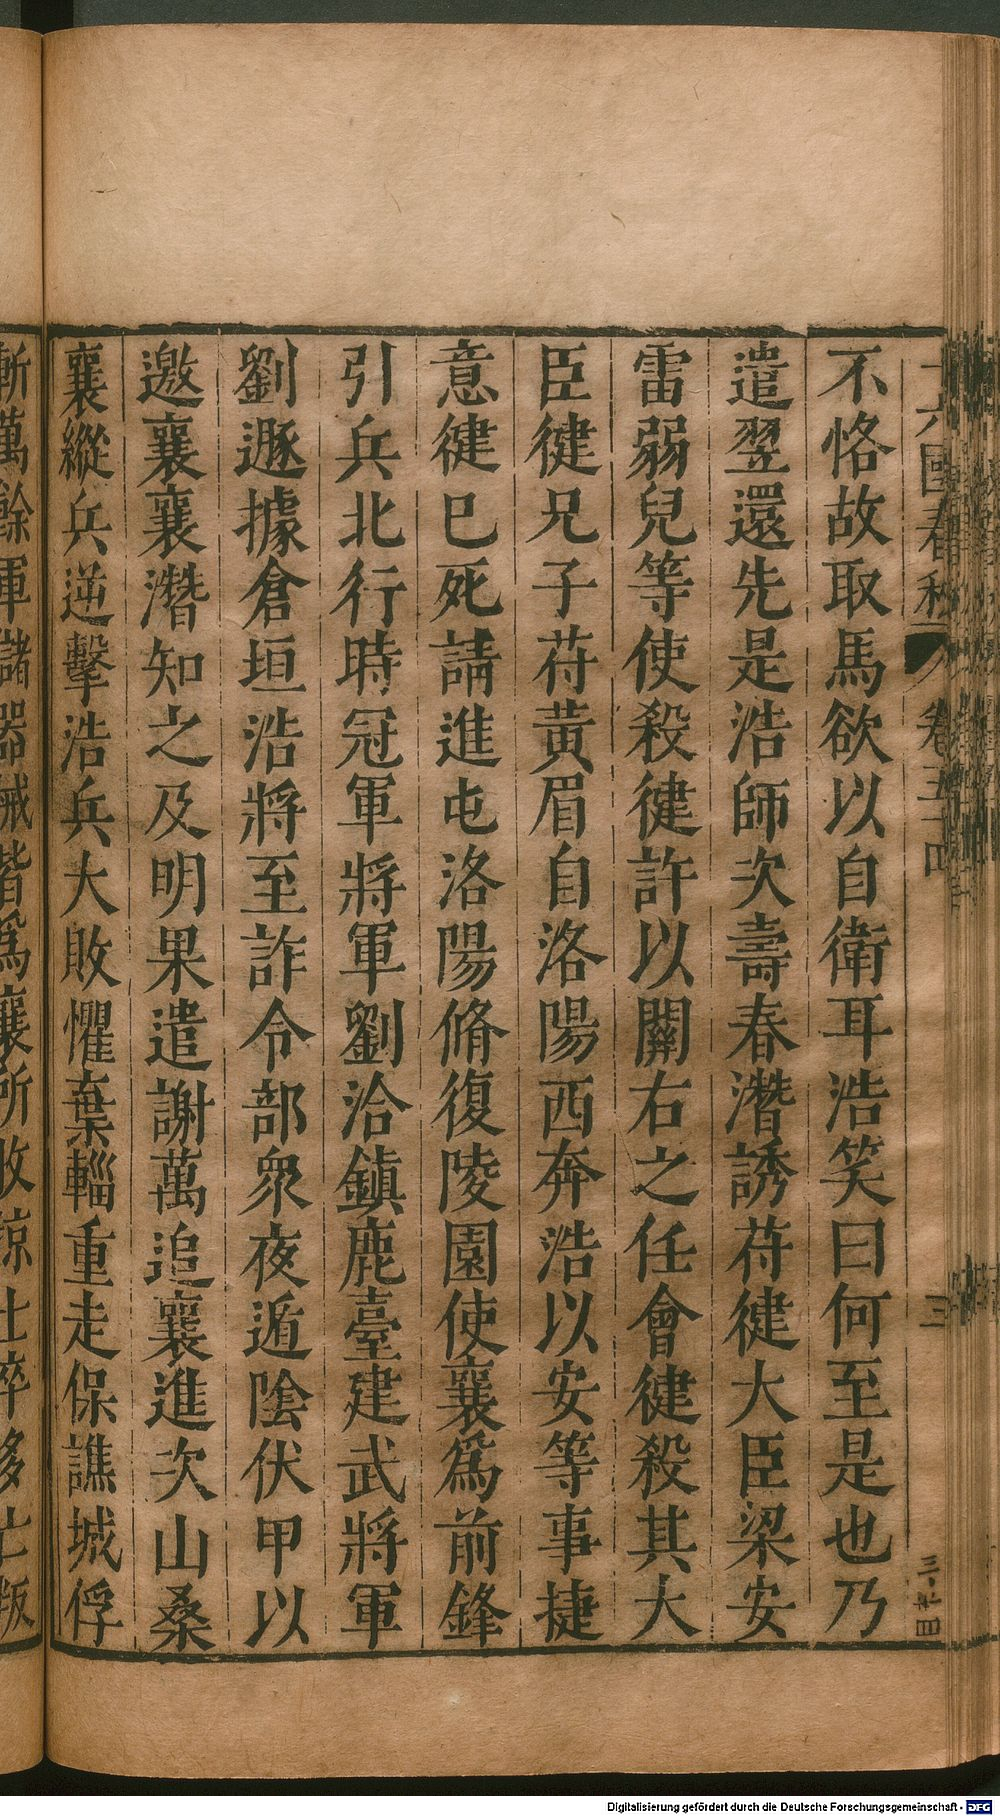 十六國春秋 卷五十四 三
不恪故取馬欲以自衛耳浩笑曰何至是也乃
遣翌還先是浩師次壽春潛誘苻健大臣梁安
雷弱兒等使殺健許以關右之任會健殺其大
臣健兄子苻黃眉自洛陽西奔浩以安等事捷
意健巳死請進屯洛陽脩復陵園使襄爲前鋒
引兵北行時冠軍將軍劉洽鎮鹿臺建武將軍
劉遯據倉垣浩將至詐令部衆夜遁陰伏甲以
邀襄襄潛知之及明果遣謝萬追襄進次山桑
襄縱兵逆擊浩兵大敗懼棄輜重走保譙城俘
斬萬餘軍儲器械皆爲襄所收諒士卒多亡叛
Digitalisierung gefördert durch die Deutsche Forschungsgemeinschaft - DFG